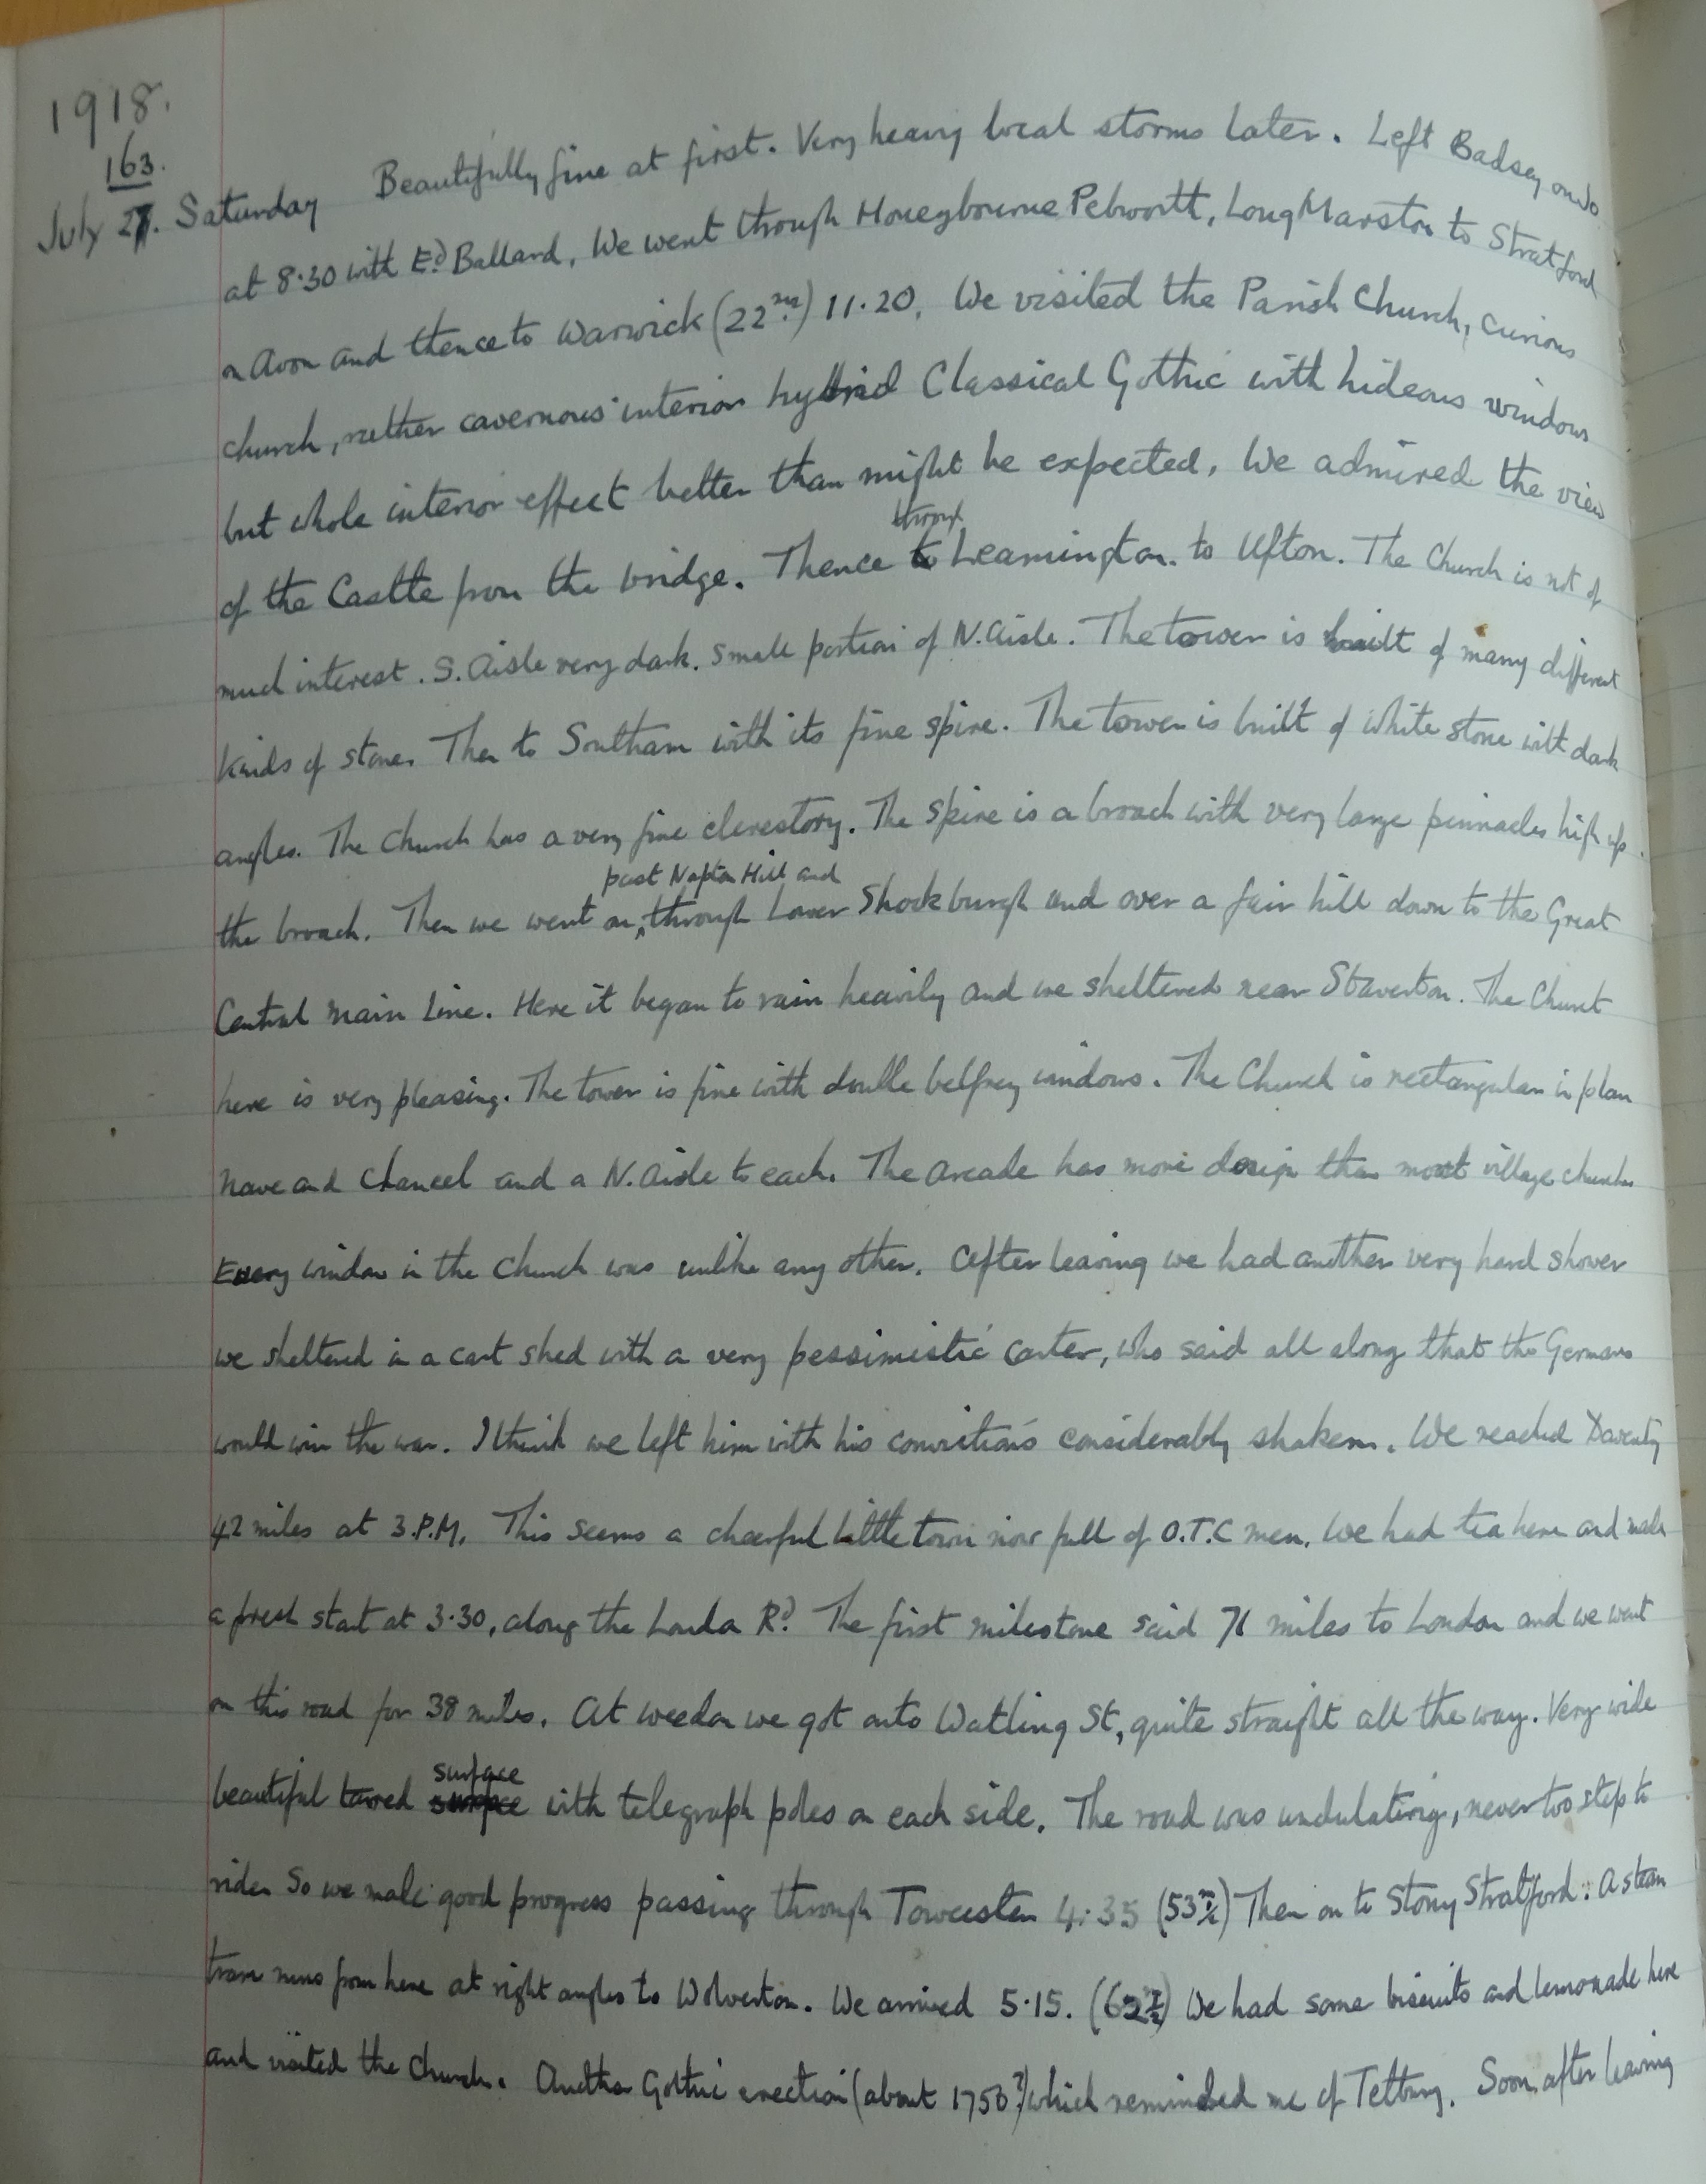 1918.
163.
July 27. Saturday Beautifully fine at first. Very heavy local storms later. Left Badsey
at 8.30 with Ed Ballard, We went through Honeybourne Pebworth, Long Marston to Stratford
on Avon and thence to Warwick (22 ms) 11.20. We visited the Parish Church, curious
church, rather cavernous interior hybrid Classical Gothic with hideous windows
but whole interior effect better than might be expected. We admired the view
of the Castle from the bridge. Thence through Leamington. to Ufton. The Church is not of
much interest. S. Aisle very dark. small portion of N. Aisle. The tower is built of many different
kinds of stone. Then to Southam with its fine spire. The tower is built of white stone with dark
angles. The Church has a very fine clerestory. The spire is a broach with very large pinnacles high up
past Napton Hill and
the broach. Then we went on, through Lower Shuckburgh and over a fair hill down to the Great
Central main Line. Here it began to rain heavily and we sheltered near Staverton. The Church
here is very pleasing. The tower is fine with double belfrey windows. The Church is rectangular in plan
nave and Chancel and a N. Aisle to each. The arcade has more design than most village churches
Every window in the Church was unlike any other. After leaving we had another very hard shower
we sheltered in a cart shed with a very pessimistic Carter, who said all along that the Germans
would win the war. I think we left him with his convictions considerably shaken. We reached Daventry
42 miles at 3.P.M. This seems a cheerful little town now full of O.T.C men. We had tea here and made
a fresh start at 3.30, along the London Rd. The first milestone said 71 miles to London and we went
on this road for 38 miles. At Weedon we got onto Watling St, quite straight all the way. Very wide
beautiful tarred surface with telegraph poles on each side. The road was undulating, never too steep to
ride. So we made good progress passing through Towcester 4.35 (53½) Then on to Stony Stratford. A steam
tram runs from here at right angles to Wolverton. We arrived 5.15. We had some biscuits and lemonade here
and visited the Church. Another Gothic erection (about 1750?) which reminded me of Tetbury. Soon after leaving